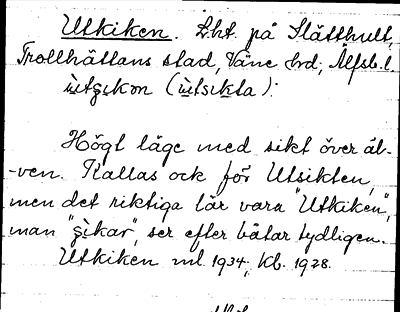 Utkiken. Lht. på Slätthult,
Trollhättans stad, Väne hd, Älfsb. l.
ùtʂikon (ùtsikta).
Högt läge med sikt över äl-
-ven. Kallas ock för Utsikten,
men det riktiga lär vara "Utkiken",
man "ʂìkar", ser efter båtar tydligen.
Utkiken ml. 1934, Kb. 1928.